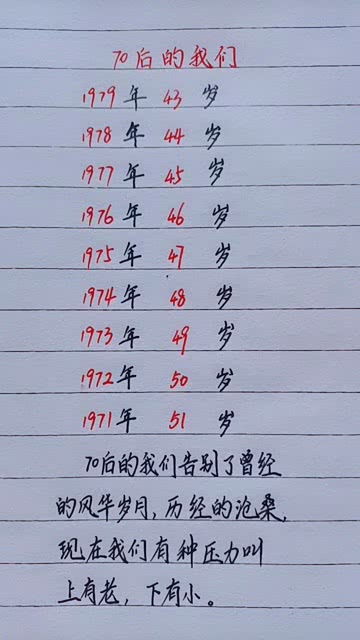 70后的我们
1979年 43 岁
1978年 44 岁
1977年 45 岁
1976年 46 岁
1975年 47 岁
1974年 48 岁
1973年 49 岁
1972年 50 岁
1971年 51 岁
70后的我们告别了曾经
的风华岁月,历经的沧桑,
现在我们有种压力叫
上有老,下有小。